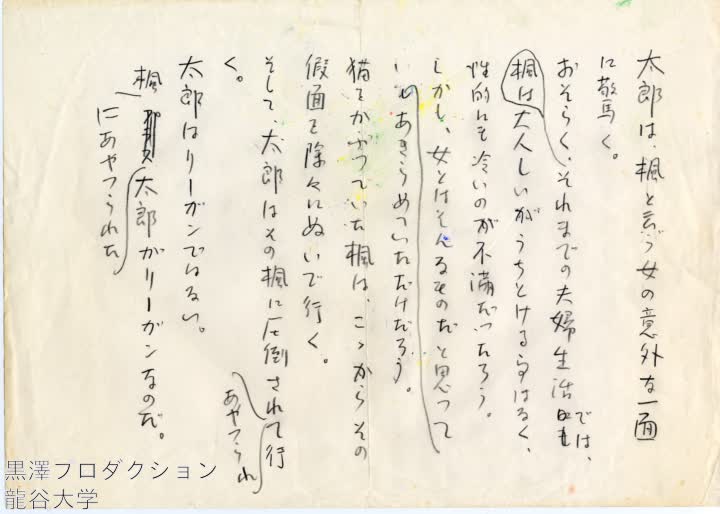 太郎は、楓と云う女の意外な一面
に驚く。
おそらく、それまでの夫婦生活では、
楓は大人しいがうちとける事はなく、
性的にも冷いのが不満だったろう。
しかし、女とはそんなものだと思って
いしあきらめていただけだろう。
猫をかぶっていた楓は、こゝからその
仮面を除々にぬいで行く。
そして、太郎はその楓に圧倒されて行
あやつられ
く。
太郎はリーガンではない。
楓
にあやつられた
太郎がリーガンなのだ。
黒澤プロダクション
龍谷大学